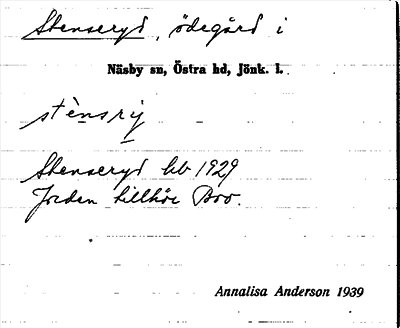 Stenseryd, ödegård i
Näsby sn, Östra hd, Jönk. l.
stènsry
Stenseryd hb 1929
Jorden tillhör Bro.
Annalisa Anderson 1939